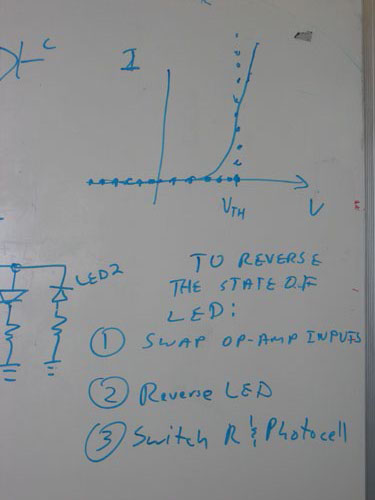 C
I
VTH
V
LED2
TO REVERSE
THE STATE OF
LED:
1 SWAP OP-AMP INPUTS
2 Reverse LED
3 Switch R & Photocell